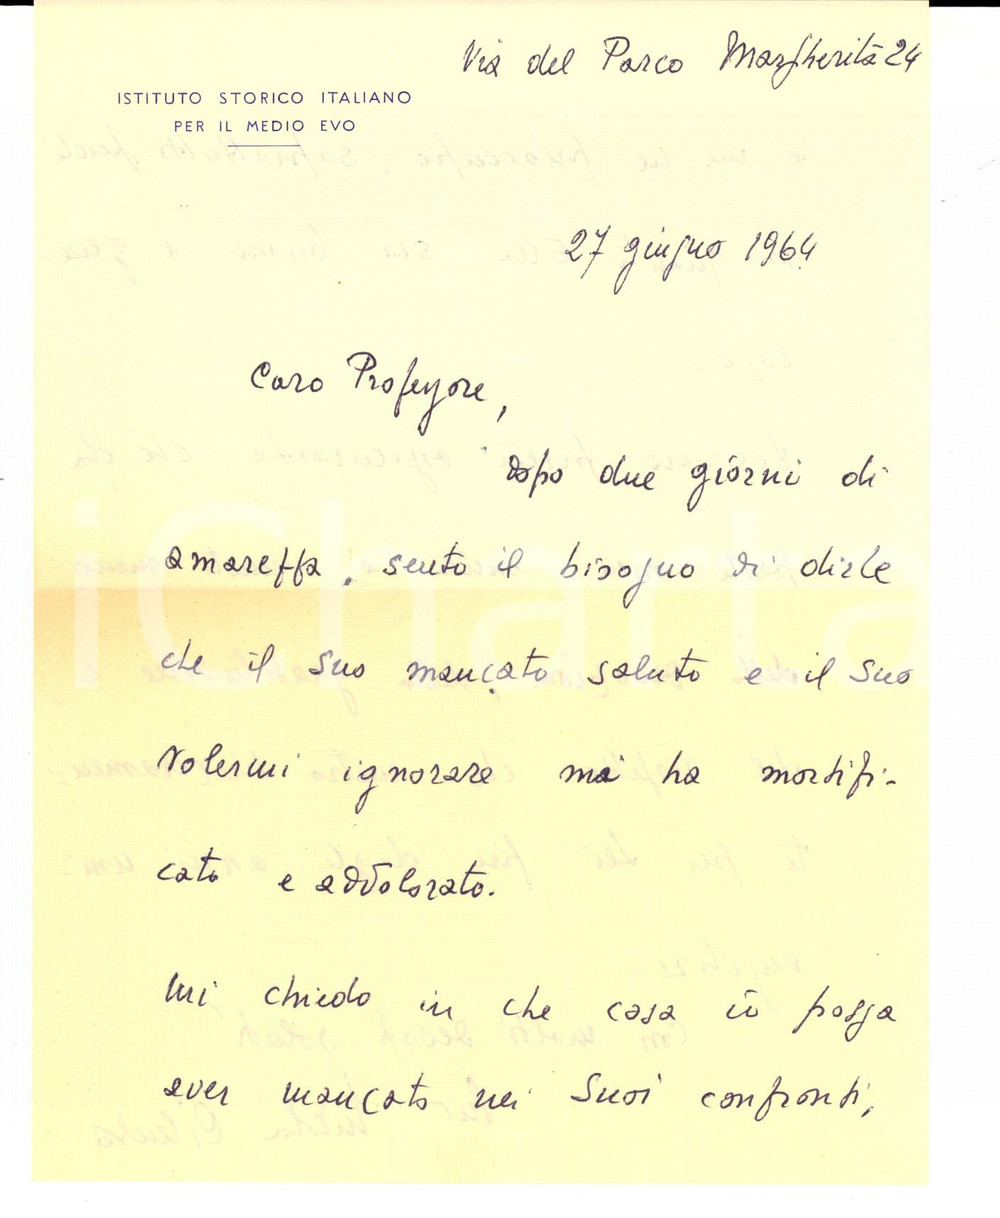 Via del Parco Margherita 24
ISTITUTO STORICO ITALIANO
PER IL MEDIO EVO
27 giugno 1964
Caro Professore,
dopo due giorni di
amarezza, sento il bisogno di dirle
che il Suo mancato saluto e il Suo
volermi ignorare mi ha mortifi-
cato e addolorato.
Mi chiedo in che cosa io possa
aver mancato nei Suoi confronti,
iCharta